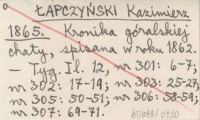 ŁAPCZYŃSKI Kazimierz
1865. Kronika góralskiej
chaty, spisana w roku 1862.
– Tyg. Il. 12, nr 301: 6-7;
nr 302: 17-19; nr 303: 25-27;
nr 305: 50-51; nr 306: 58-59;
nr 307: 69-71.